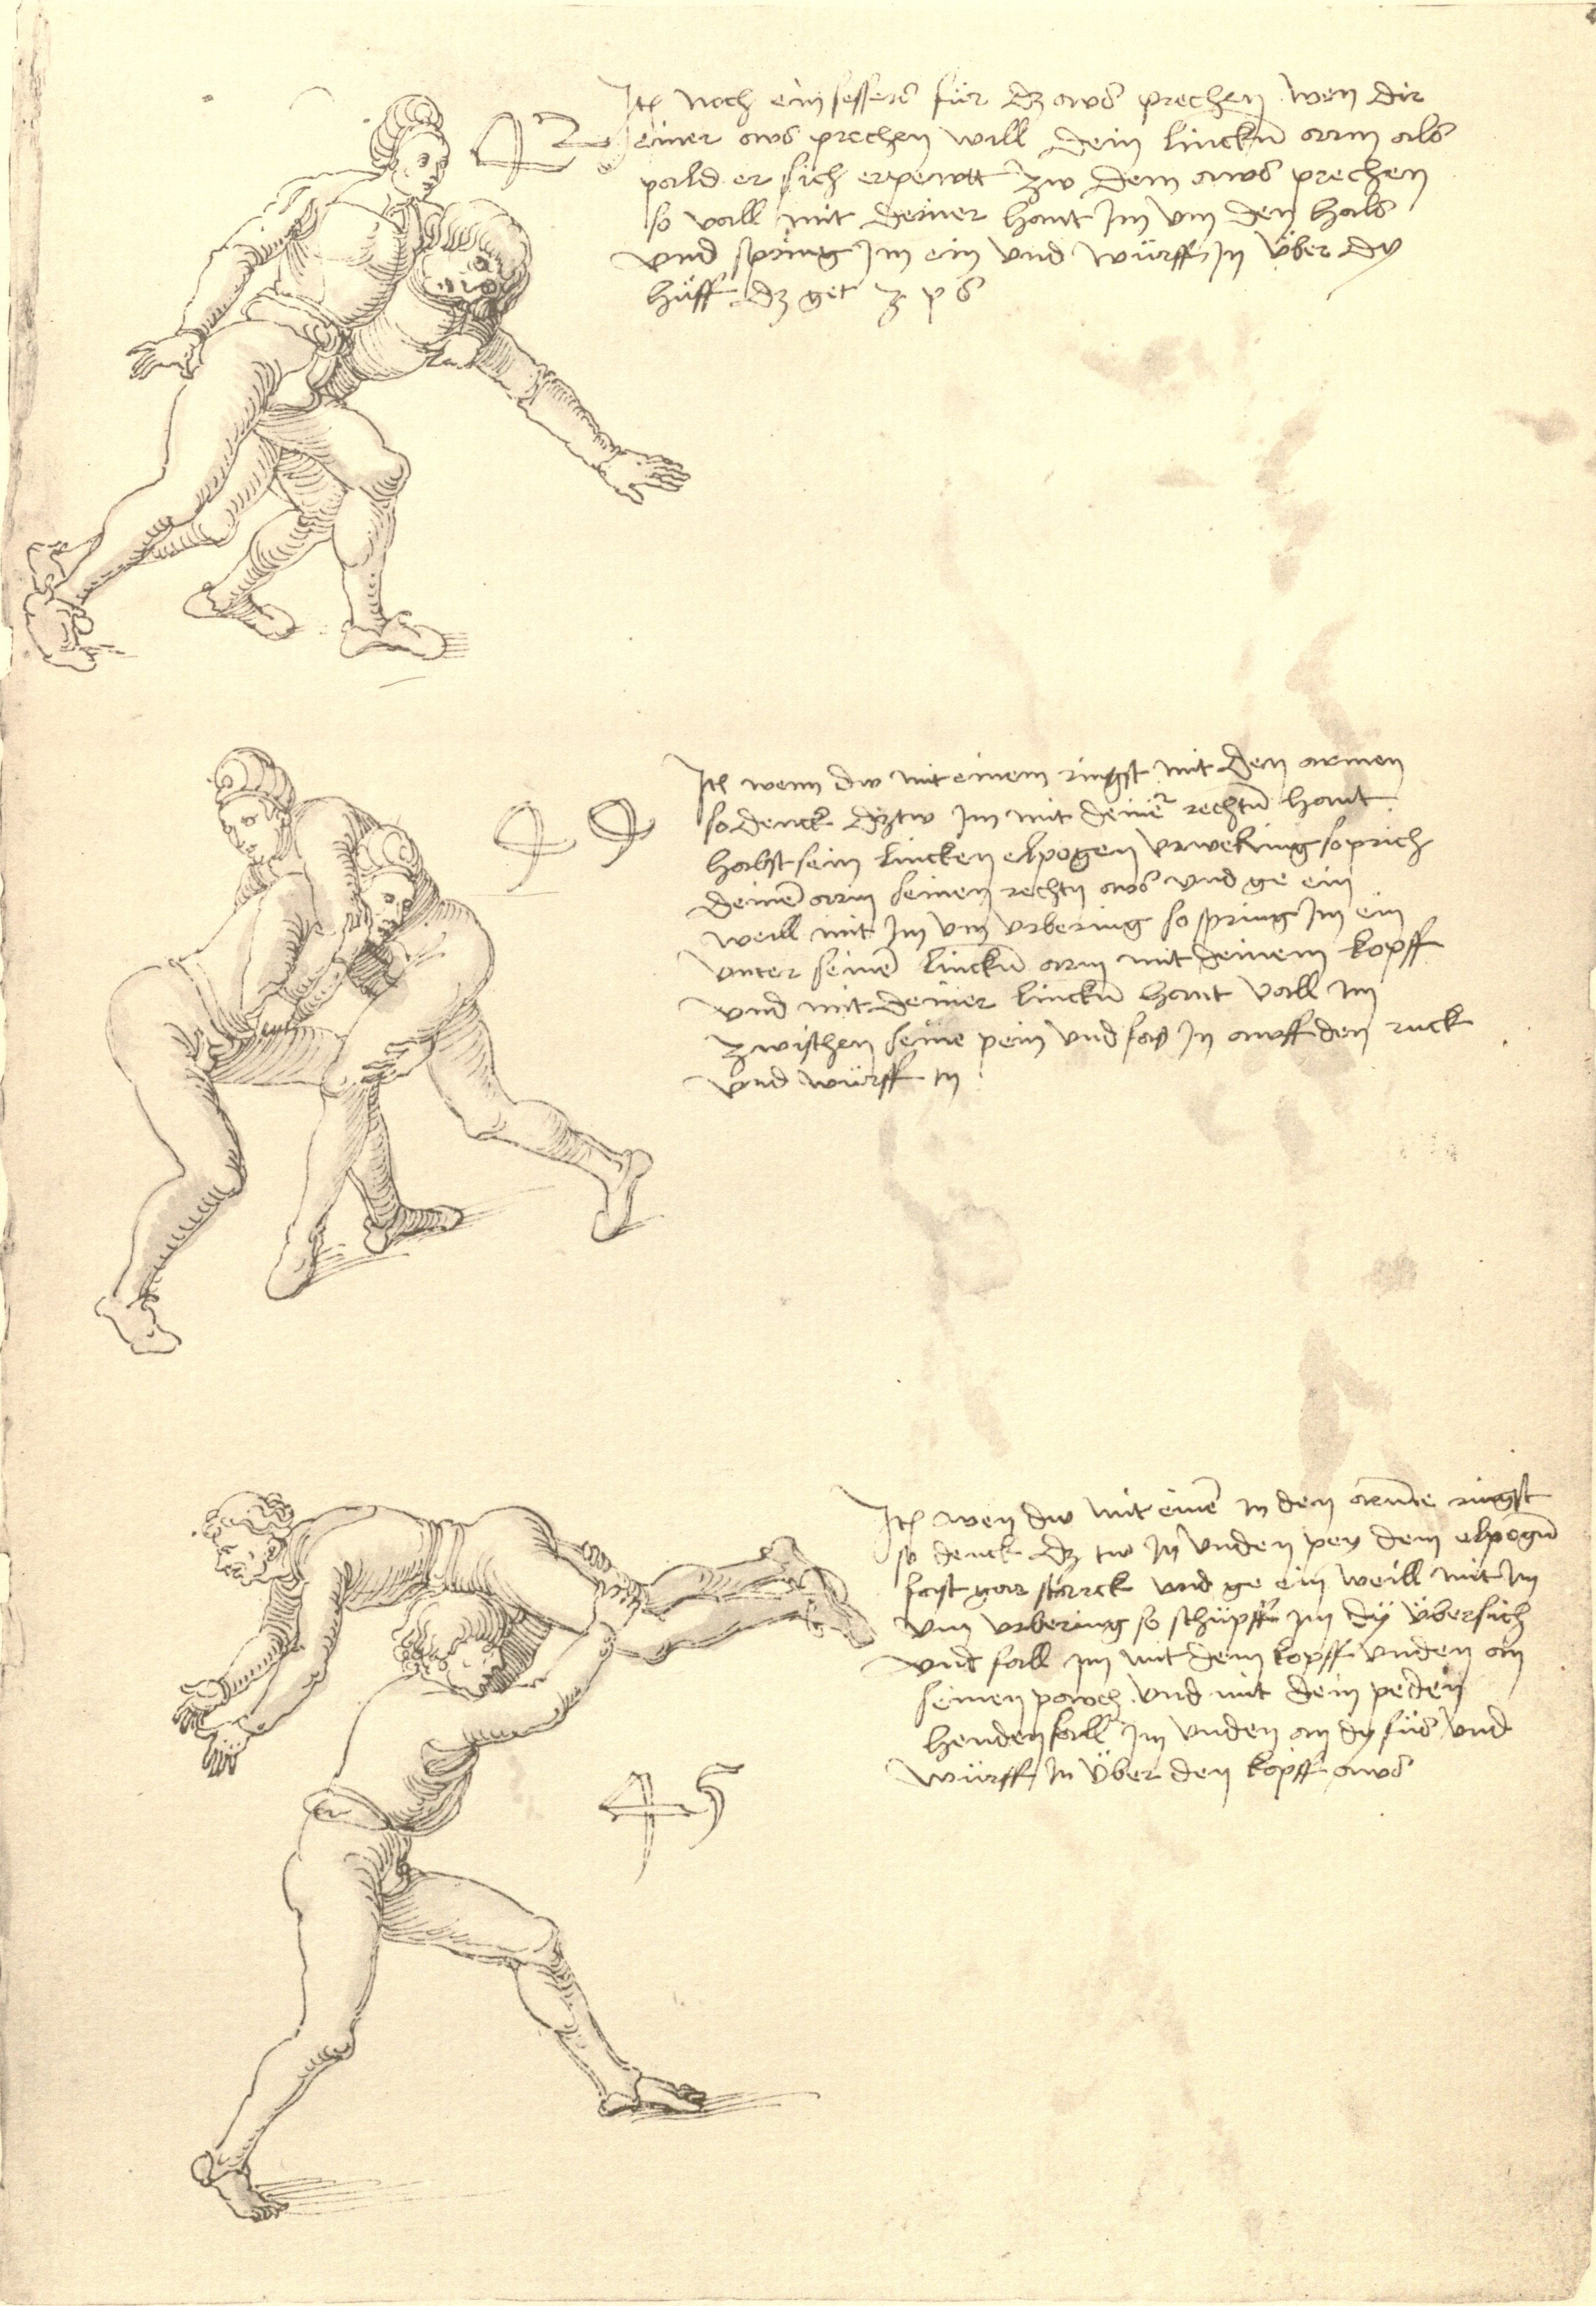 42
Itm noch ein pessers für dz aws prechen wen dir
einer aws prechen will dein linckn̄ arm als
pald er sich erpewtt zw dem aws prechen
so vall mit deiner hant Im vm den hals
vnd spring Im ein vnd würff In über dy
hüff dz get z p s
44
Itm wenn dw mit einem ringst mit den armen
so denck dztw im mit deinē rechtn̄ hant
habst sein lincken elpogen so prich
deinē arm seinen rechtn aws vnd ge ein
weill mit Im vm vrbering so spring Im ein
vnter seinē linckn̄ arm mit deinem kopff
vnd mit deiner linckn̄ hant vall im
zwischen seine pein vnd fas In awff den ruck
vnd würff In
Itm wen dw mit einē in den armē ringst
so denck dz tw In vnden pey dem elpogn̄
fast gar starck vnd ge ein weill mit Im
vm vrbering so schüpff im dÿ übersich
vnd fall im mit dem kopff vnden an
seinen pawch vnd mit dein peden
henden fall Im vnden an dy füs vnd
würff In über den kopff aws
45